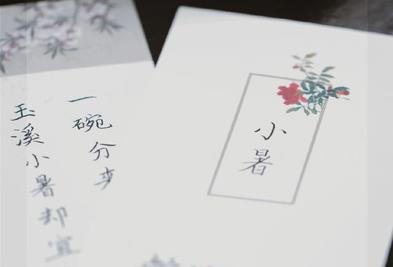 一碗分来
玉溪小暑却宜
小暑